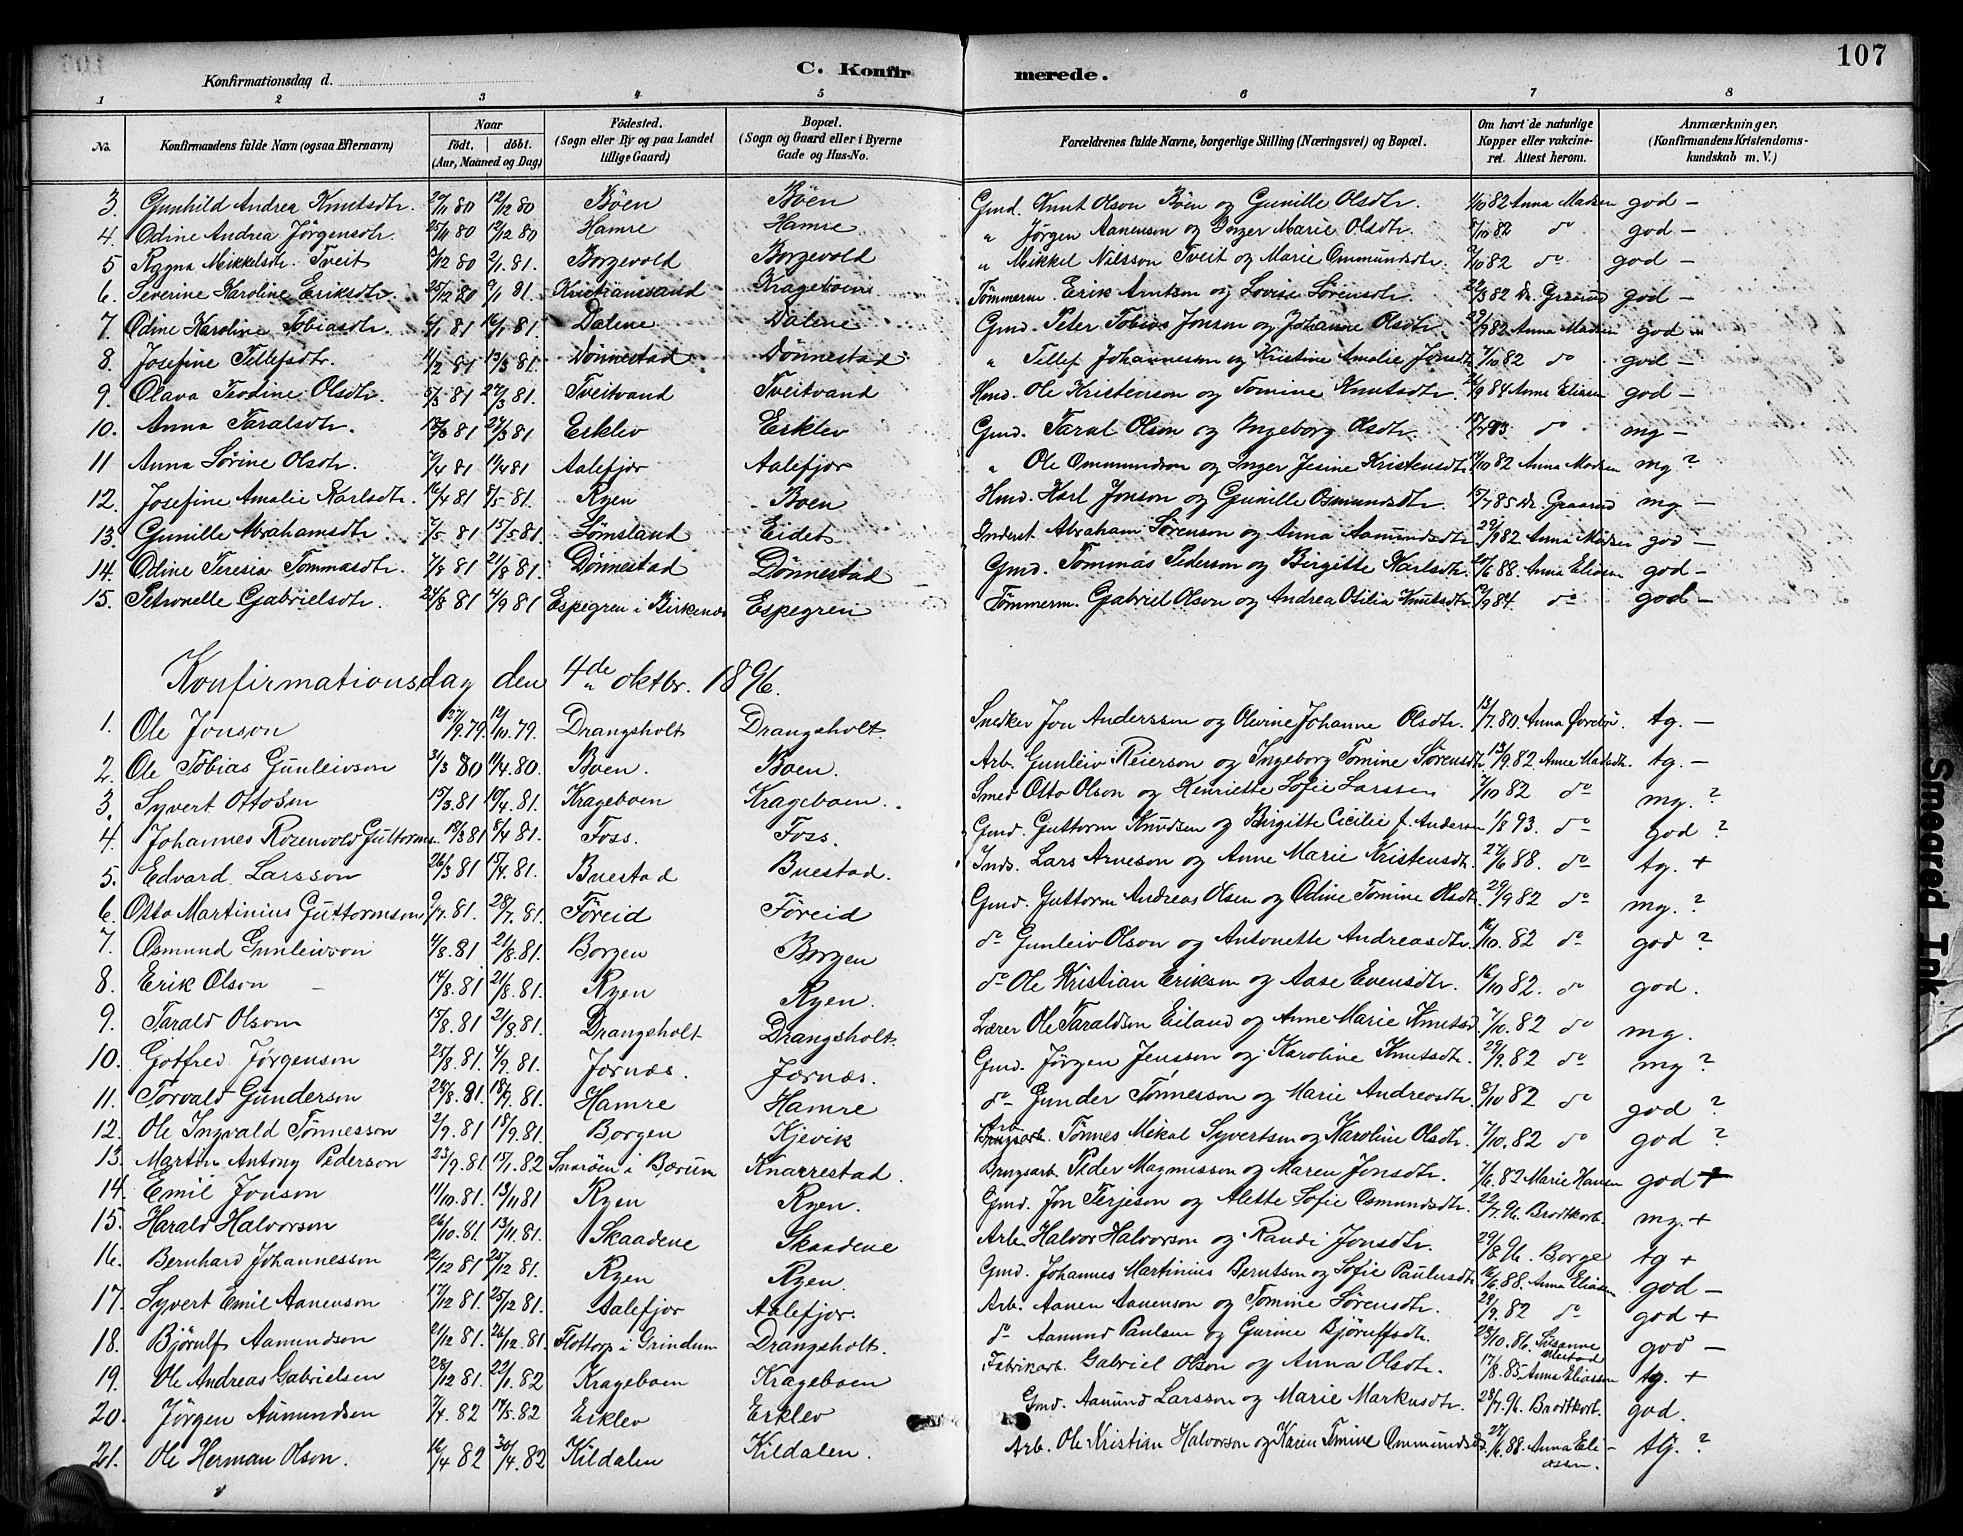 107
C. Konfirmerede.
Konfirmationsdag d.
1 2 3 4 5 6 7 8
No. Konfirmandens fulde Navn (ogsaa Efternavn) Naar født. døbt. (Aar, Maaned og Dag) Fødested. (Sogn eller By og paa Landet tillige Gaard) Bopæl. (Sogn og Gaard eller i Byerne Gade og Hus-No. Forældrenes fulde Navne, borgerlige Stilling (Næringsvei) og Bopæl. Om havt de naturlige Kopper eller vakcineret. Attest herom. Anmærkninger. (Konfirmandens Kristendomskundskab m. V.)
3. Gunhild Andrea Knutsdtr. 27/11 80 12/12 80 Böen Böen Gmd. Knut Olson Böen og Gunille Olsdtr. 1/10 82 Anna Madsen god –
4 Odine Andrea Jörgensdtr. 25/11 80 12/12 80 Hamre Hamre " Jörgen Aanenson og Inger Marie Olsdtr. 8/10 82 do god –
5 Ragna Mikkelsdtr. Tveit 2/12 80 2/1 81. Borgevold Borgevold " Mikkel Nilsson Tveit og Marie Ommundsdtr. 7/10 82 do god –
6. Severine Karoline Eriksdtr. 25/12 80 9/1 81. Kristianssand Krageboen Tömmerm Erik Arntson og Lovise Sörensdtr. 22/3 82 Dr. Graarud god –
7. Odine Karoline Tobiasdtr. 6/1 81 16/1 81. Dalene Dalene Gmd. Peter Tobias Jonson og Johanne Olsdtr. 29/9 82 Anna Madsen god –
8. Josefine Tellefsdtr. 11/2 81 13/3 81. Dönnestad Dönnestad " Tellef Johannesson og Kristine Amalie Jonsdtr. 7/10 82 do god –
9. Olava Teodine Olsdtr. 5/3 81 27/3 81. Tveitvand Tveitvand Hmd. Ole Kristenson og Tomine Knutsdtr. 2/9 84 Anne Eliasen god –
10. Anna Taralsdtr. 13/3 81 27/3 81 Esklev Esklev Gmd. Taral Olson og Ingeborg Olsdtr. do mg –
11 Anna Sörine Olsdtr. 2/4 81 11/4 81 Aalefjær Aalefjær " Ole Ommundson og Inger Jesine Kristensdtr. 14/10 82 Anna Madsen mg ?
12. Josefine Amalie Karlsdtr. 16/4 81 8/5 81. Ryen Boen Hmd. Karl Jonson og Gunille Osmundsdtr. 15/7 85 Dr. Graarud mg –
13. Gunille Abrahamsdtr. 7/5 81 15/5 81. Lömsland Eidet Inderst Abraham Sörenson og Anna Aamundsdtr. 29/9 82 Anna Madsen god –
14. Odine Teresia Tommasdtr. 7/8 81 21/8 81. Dönnestad Dönnestad Gmd. Tommas Pederson og Birgitte Karlsdtr. 20/6 88. Anna Eliasen god –
15. Petronelle Gabrielsdtr. 24/8 81 4/9 81 Espegren i Birkenes Espegren Tömmerm. Gabriel Olson og Andrea Otilia Knutsdtr. 12/9 84. do god –
Konfirmationsdag den 4de oktbr. 1896.
1. Ole Jonson 27/9.79. 12/10.79. Drangsholt Drangsholt. Snedker Jon Anderssen og Olevine Johanne Olsdtr. 13/7.80. Anna tg. –
2. Ole Tobias Gunleivson 31/3 80 11/4.80. Boen. Boen. Arb. Gunleiv Reierson og Ingeborg Tomine Sörensdtr. 13/9.82. Anne Madsdtr. tg. –
3. Syvert Ottosen 15/3.81 10/4.81. Krageboen Krageboen. Smed Otto Olson og Henriette Sofie Larssen 7/10 82 do mg. ?
4. Johannes Rozenvold Guttorms. 19/3 81 8/4 81. Foss. Foss. Gmd. Guttorm Knudsen og Birgitte Cicilie f. Anderson 1/8 93. do god ?
5. Edvard Larsson 26/3 81 15/4.81. Buestad Buestad. Inds. Lars Arneson og Anne Marie Kristensdtr. 27/6 88. do tg. +
6. Otto Martinius Guttormson 9/7.81. 28/7.81. Föreid Föreid Gmd. Guttorm Andreas Olsen og Odine Tomine Olsdtr. 29/9 82 do mg. ?
7. Osmund Gunleivson 4/8.81 21/8.81. Borgen Borgen do Gunleiv Olson og Antonette Andreasdtr. 16/10.82 do god ?
8. Erik Olson – 14/8.81 21/8.81. Ryen Ryen. do Ole Kristian Erikson og Aase Evensdtr. 16/10 82. do god.
9. Tarald Olsson 15/8.81. 21/8.81. Drangsholt Drangsholt. Lærer Ole Taraldsen Eiland og Anne Marie Knutsd. 7/10.82 do mg.
10. Gotfred Jörgenson 25/8.81. 4/9.81. Jornæs. Jornæs. Gmd. Jörgen Jensson og Karoline Knutsdtr. 29/9.82 do mg ?
11. Torvald Gunderson 28/8.81. 18/9.81. Hamre Hamre do Gunder Tönnesson og Marie Andreasdtr. 8/10 82 do god ?
12. Ole Ingvald Tönnesson 2/9.81 18/9.81. Borgen Kjevik Arb. Tönnes Mikal Syvertsen og Karoline Olsdtr. 7/10.82 do god ?
13. Martin Antony Pederson 23/9.81 15/1.82 Snaröen i Bærum Knarrestad. Brugsarb. Peder Magnusson og Maren Jonsdtr. 7/6.82 Marie Hansen god +
14. Emil Jonson 11/10.81. 13/11 81 Ryen Ryen. Gmd. Jon Terjeson og Alette Sofie Osmundsdtr. 22/7.96. Brodtkorb. mg. +
15. Harald Halvorson 26/10.81 13/11.81. Skaadene Skaadene Arb. Halvor Halvorson og Randi Jonsdtr. 29/8.96. Borge tg +
16. Bernhard Johannesson 12/12 81 25/12 81. Ryen Ryen. Gmd. Johannes Martinius Berntsen og Sofie Paulusdtr. 16/6.88. Anna Eliasen god –
17. Syvert Emil Aanenson 17/12 81. 25/12 81. Aalefjær Aalefjær. Arb. Aanen Aanenson og Tomine Sörensdtr. 29/9.82 do god +
18. Björulf Aamundson 21/12 81. 26/12.81. Flottorp i Grindum Drangsholt. do Aamund Paulsen og Gurine Björulfsdtr. 25/10.86. Susanne god –
19. Ole Andreas Gabrielsen 28/12 81. 22/1.82 Krageboen Krageboen Fabrikarb. Gabriel Olson og Anna Olsdtr. 17/8.85. Anna Eliassen tg. +
20. Jörgen Aamundsen 7/4.82 17/5.82 Esklev Esklev Gmd. Aamund Larsson og Marie Markusdtr. 28/7.96. Brodtkorb. god.
21. Ole Herman Olson. 16/4 82 30/4.82 Kildalen Kildalen. Arb. Ole Kristian Halvorson og Karen Tomine Ommundsd. 27/6.88. Anna Eliassen. tg. ?
Smeared Ink